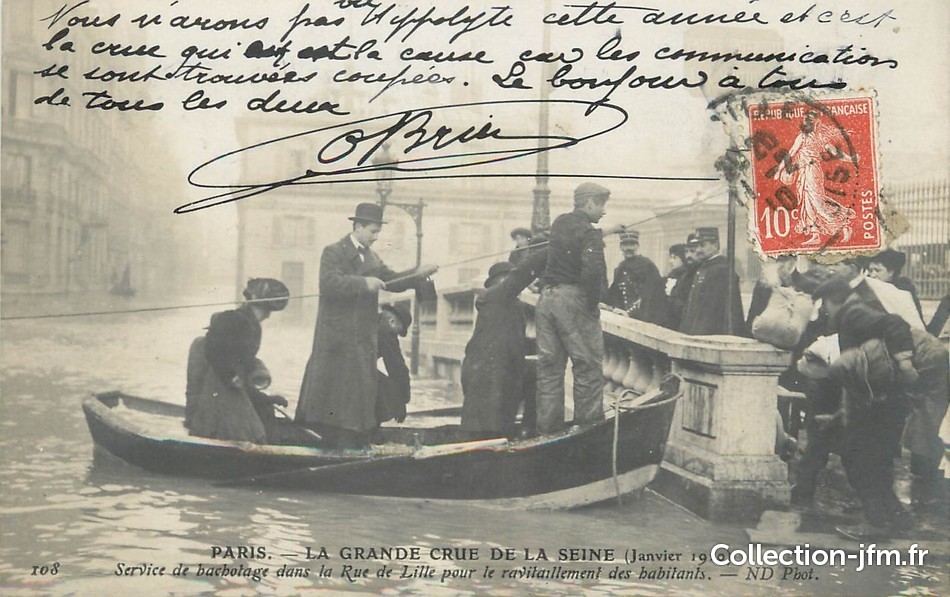 vu
Nous n'avons pas Hippolyte cette année et c'est
la crue qui est la cause car les communication
se sont trouvées coupées. Le bonjour à tous
de tous les deux
OBrier
REPUBLIQUE FRANÇAISE
10c
POSTES
PARIS. — LA GRANDE CRUE DE LA SEINE (Janvier
108 Service de bachotage dans la Rue de Lille pour le ravitaillement des habitants. — ND Phot.
Collection-jfm.fr